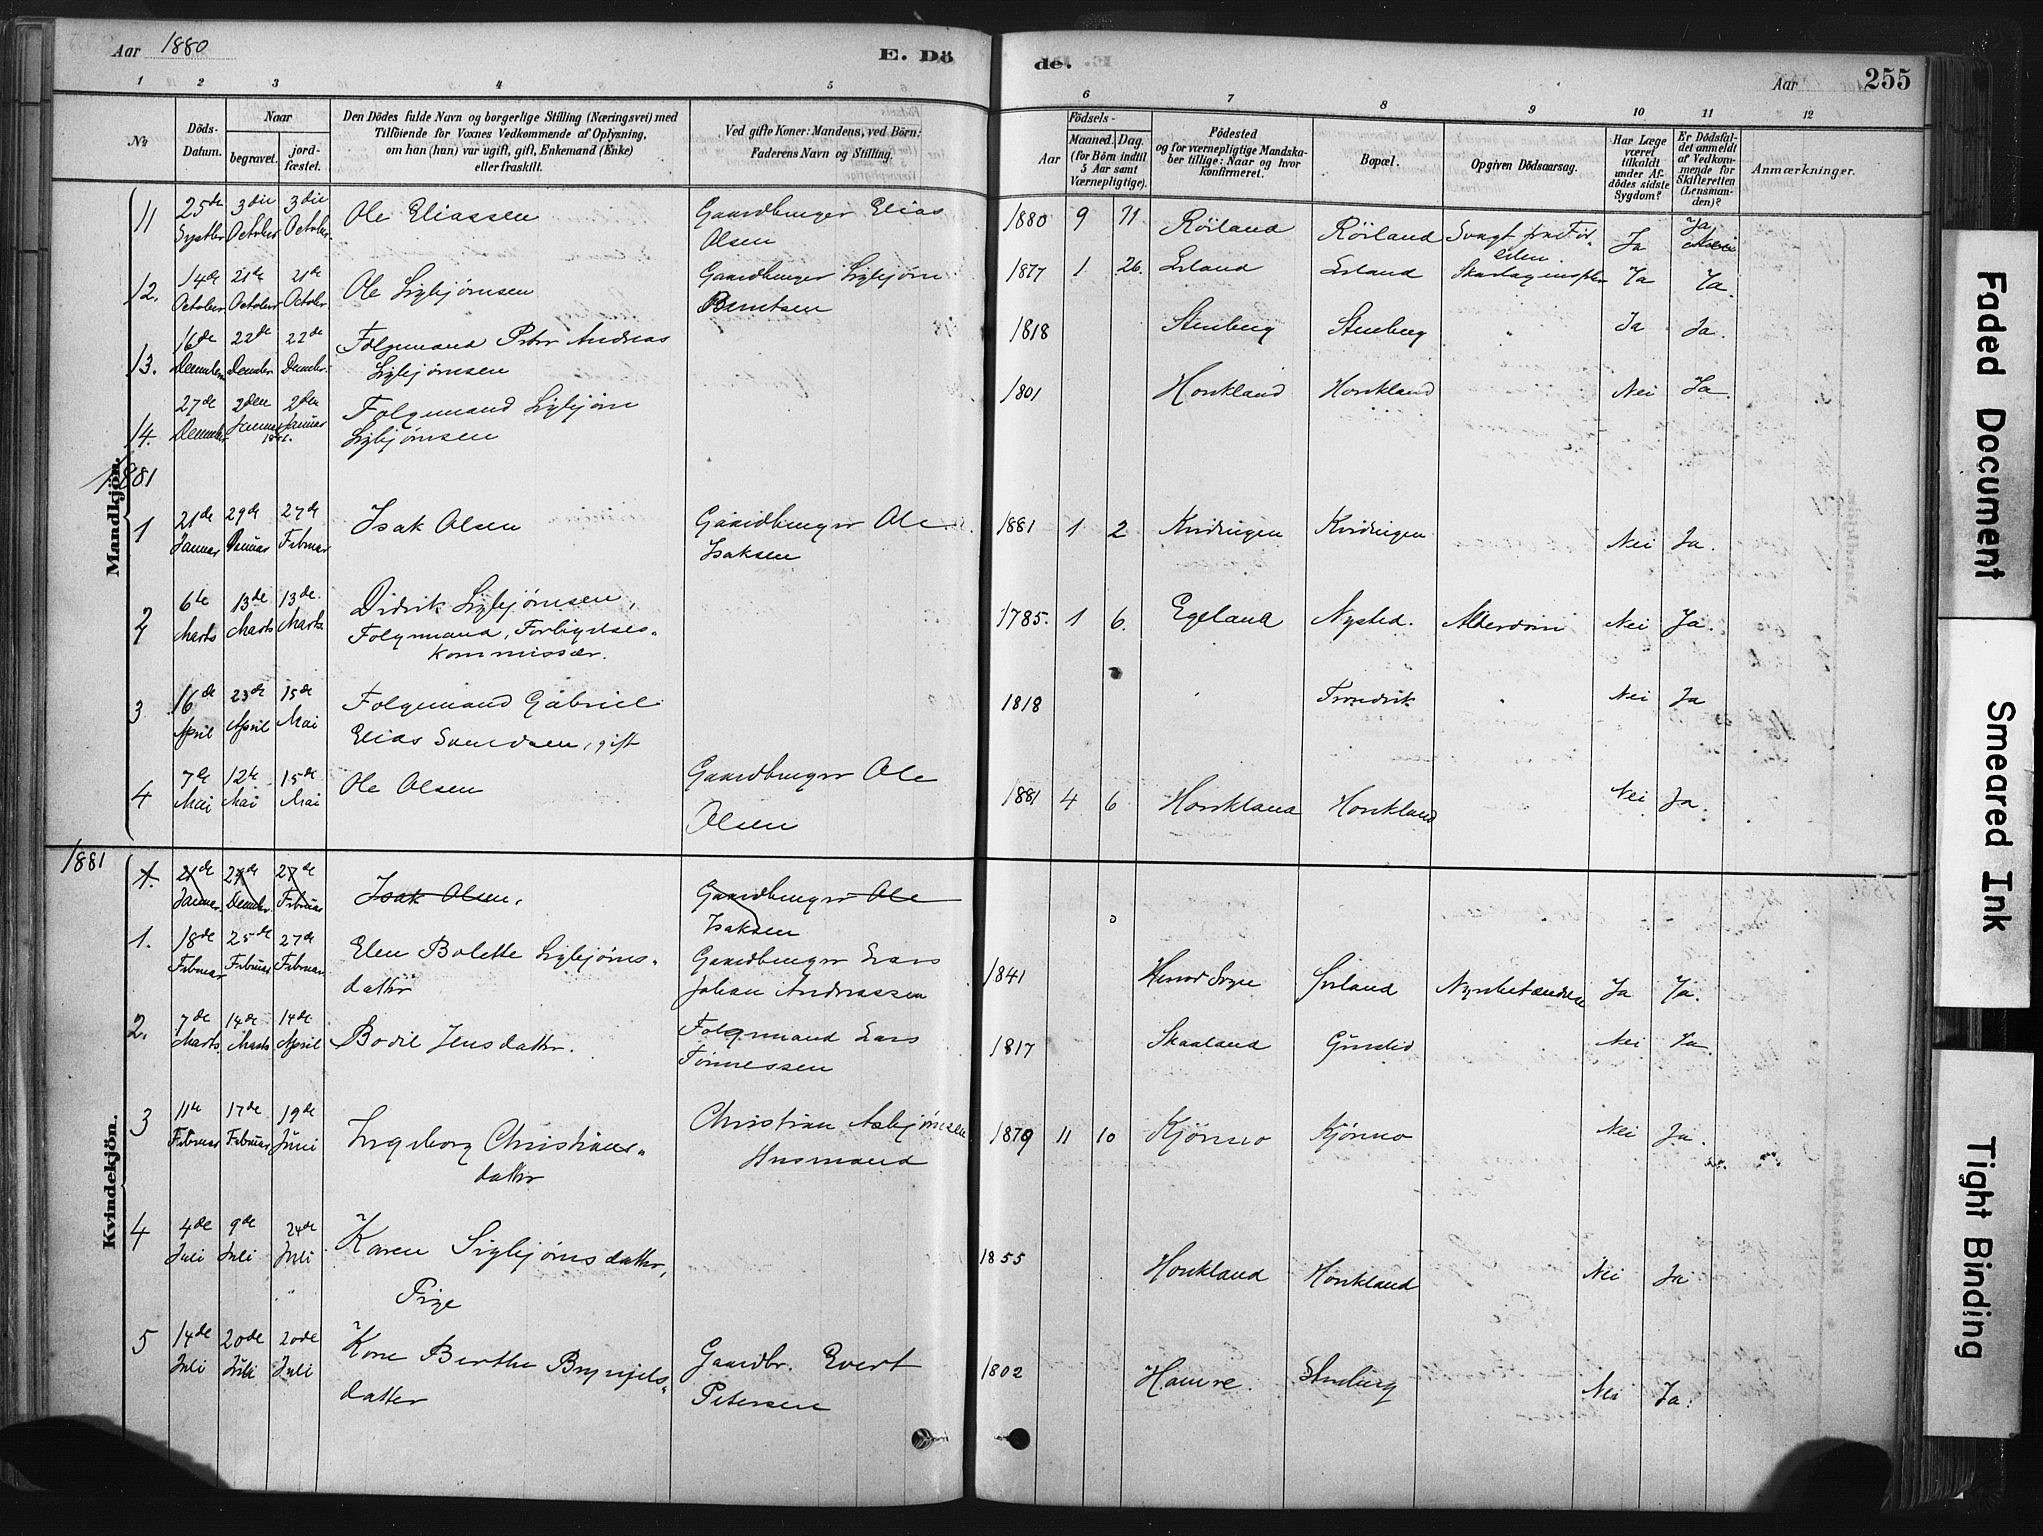 Aar 1880
E. Dö
de.
Aar
255
1 2 3 4 5 6 7 8 9 10 11 12
No
Döds-
Datum.
Naar
begravet.
jord-
fæstet.
Den Dödes fulde Navn og borgerlige Stilling (Næringsvei) med
Tilföiende for Voxnes Vedkommende af Oplysning,
om han (hun) var ugift, gift, Enkemand (Enke)
eller fraskilt.
Ved gifte Koner: Mandens, ved Börn:
Faderens Navn og Stilling.
Födsels-
Aar
Maaned. Dag.
(for Börn indtil
5 Aar samt
Værnepligtige).
Födested
og for værnepligtige Mandska-
ber tillige: Naar og hvor
konfirmeret.
Bopæl.
Opgiven Dödsaarsag.
Har Læge
været
tilkaldt
under Af-
dödes sidste
Sygdom?
Er Dödsfal-
det anmeldt
af Vedkom-
mende for
Skifteretten
(Lensman-
den)?
Anmærkninger.
Mandkjön.
11 25de Septbr 3die October 3die October Ole Eliassen Gaardbruger Elias
Olsen 1880 9 11 Röiland Röiland Svagt fra Föd-
selen Ja Ja
12. 14de October 21de October 21de October Ole Sigbjörnsen Gaardbruger Sigbjörn
Berntsen 1877 1 26. Ja Ja.
13. 16de December 22de December 22de December Folgemand Peder Andreas
Sigbjörnsen 1818 Stenberg Stenberg " Ja Ja.
14. 27de December 2den Januar 1881. 2den Januar Folgemand Sigbjörn
Sigbjörnsen 1801 Honkland Honkland Nei Ja.
1881
1 21de Januar 29de Januar 27de Februar Isak Olsen Gaardbruger Ole
Isaksen 1881 1 2 Kvidingen Kvidingen Nei Ja.
2 6te Marts 13de Marts 13de Marts Didrik Sigbjörnsen,
Folgemand, Forligelses-
kommissær. 1785. 1 6. Egeland Nysted. Alderdom Nei Ja.
3 16de April 23de April 15de Mai Folgemand Gabriel
Elias Svendsen, gift 1818 " Nei Ja
4 7de Mai 12te Mai 15de Mai Ole Olsen Gaardbruger Ole
Olsen 1881 4 6 Honkland Honkland Nei Ja.
1881
Kvindekjön.
1. 21de Januar 29de 27de Februar Isak Olsen. Gaardbruger Ole
Isaksen
1. 18de Februar 25de Februar 27de Februar Elen Bolette Sigbjörns-
datter Gaardbruger Lars
Johan Andreassen 1841 Ja Ja.
2. 7de Marts 14de Marts 14de April Bodil Jensdatter. Folgemand Lars
Tönnessen 1817 Skaaland Nei Ja.
3 11te Februar 17de Februar 19de Juni Ingeborg Christians-
datter Christian Asbjörnsen
Husmand 1879 11 10 Kjönno Kjönno Nei Ja.
4 4de Juli 9de Juli 24de Juli Karen Sigbjörnsdatter,
Pige 1855 Honkland Honkland Nei Ja
5 14de Juli 20de Juli 20de Juli Kone Berthe Brynjels-
datter Gaardbr. Evert
Petersen 1802 Hamre. Stenberg Nei Ja.
Faded Document
Smeared Ink
Tight Binding